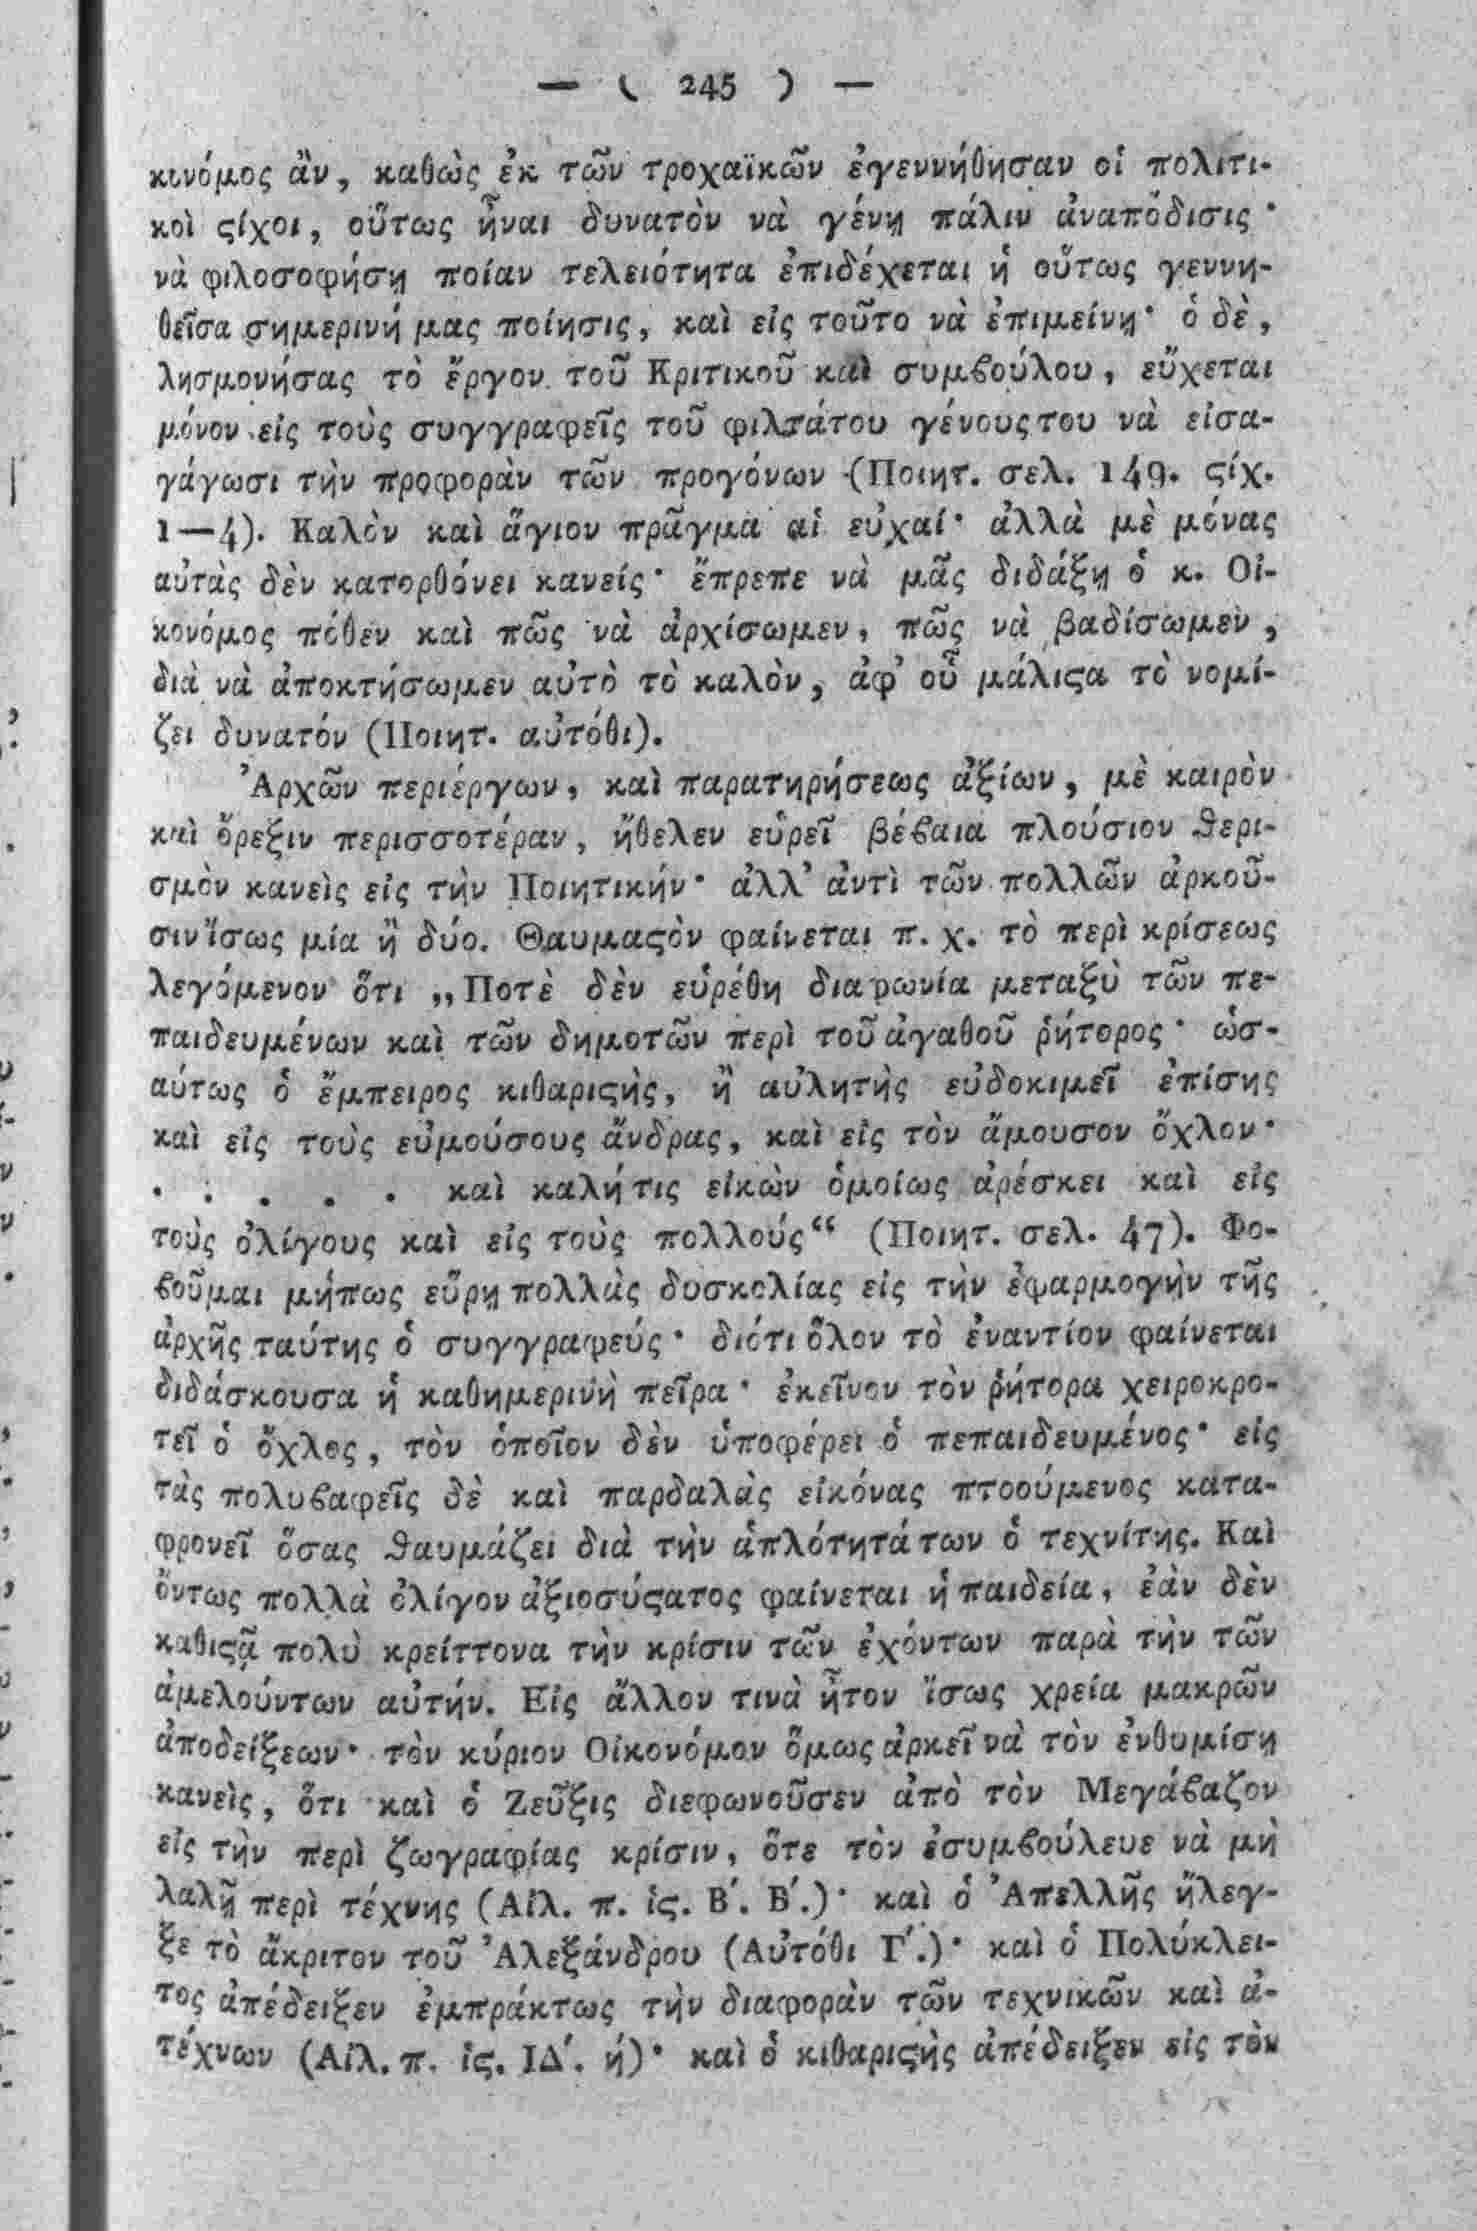 — ( 245 ) —
κινόμος ἂν, καθὼς ἐκ τῶν τροχαϊκῶν ἐγεννήθησαν οἱ πολιτι-
κοὶ ϛίχοι, οὕτως ἦναι δυνατὸν νὰ γένῃ πάλιν ἀναπόδισις·
νὰ φιλοσοφήσῃ ποίαν τελειότητα ἐπιδέχεται ἡ οὕτως γεννη-
θεῖσα σημερινή μας ποίησις, καὶ εἰς τοῦτο νὰ ἐπιμείνῃ· ὁ δὲ,
λησμονήσας τὸ ἔργον τοῦ Κριτικοῦ καὶ συμϐούλου, εὔχεται
μόνον εἰς τοὺς συγγραφεῖς τοῦ φιλτάτου γένους του νὰ εἰσα-
γάγωσι τὴν προφορὰν τῶν προγόνων (Ποιητ. σελ. 149. ϛίχ.
1—4). Καλὸν καὶ ἅγιον πρᾶγμα αἱ εὐχαί· ἀλλὰ μὲ μόνας
αὐτὰς δὲν κατορθόνει κανείς· ἔπρεπε νὰ μᾶς διδάξῃ ὁ κ. Οἰ-
κονόμος πόθεν καὶ πῶς νὰ ἀρχίσωμεν, πῶς νὰ βαδίσωμεν,
διὰ νὰ ἀποκτήσωμεν αὐτὸ τὸ καλὸν, ἀφ’ οὗ μάλιϛα τὸ νομί-
ζει δυνατόν (Ποιητ. αὐτόθι).
Ἀρχῶν περιέργων, καὶ παρατηρήσεως ἀξίων, μὲ καιρὸν
καὶ ὄρεξιν περισσοτέραν, ἤθελεν εὑρεῖ βέϐαια πλούσιον ϑερι-
σμὸν κανεὶς εἰς τὴν Ποιητικήν· ἀλλ’ ἀντὶ τῶν πολλῶν ἀρκοῦ-
σιν ἴσως μία ἢ δύο. Θαυμαϛὸν φαίνεται π. χ. τὸ περὶ κρίσεως
λεγόμενον ὅτι „Ποτὲ δὲν εὑρέθη διαφωνία μεταξὺ τῶν πε-
παιδευμένων καὶ τῶν δημοτῶν περὶ τοῦ ἀγαθοῦ ῥήτορος· ὡσ-
αύτως ὁ ἔμπειρος κιθαριϛὴς, ἢ αὐλητὴς εὐδοκιμεῖ ἐπίσης
καὶ εἰς τοὺς εὐμούσους ἄνδρας, καὶ εἰς τὸν ἄμουσον ὄχλον·
. . . . . καὶ καλή τις εἰκὼν ὁμοίως ἀρέσκει καὶ εἰς
τοὺς ὀλίγους καὶ εἰς τοὺς πολλούς“ (Ποιητ. σελ. 47). Φο-
ϐοῦμαι μήπως εὕρῃ πολλὰς δυσκολίας εἰς τὴν ἐφαρμογὴν τῆς
ἀρχῆς ταύτης ὁ συγγραφεύς· διότι ὅλον τὸ ἐναντίον φαίνεται
διδάσκουσα ἡ καθημερινὴ πεῖρα· ἐκεῖνον τὸν ῥήτορα χειροκρο-
τεῖ ὁ ὄχλος, τὸν ὁποῖον δὲν ὑποφέρει ὁ πεπαιδευμένος· εἰς
τὰς πολυϐαφεῖς δὲ καὶ παρδαλὰς εἰκόνας πτοούμενος κατα-
φρονεῖ ὅσας ϑαυμάζει διὰ τὴν ἁπλότητά των ὁ τεχνίτης. Καὶ
ὄντως πολλὰ ὀλίγον ἀξιοσύϛατος φαίνεται ἡ παιδεία, ἐὰν δὲν
καθιϛᾷ πολὺ κρείττονα τὴν κρίσιν τῶν ἐχόντων παρὰ τὴν τῶν
ἀμελούντων αὐτήν. Εἰς ἄλλον τινὰ ἦτον ἴσως χρεία μακρῶν
ἀποδείξεων· τὸν κύριον Οἰκονόμον ὅμως ἀρκεῖ νὰ τὸν ἐνθυμίσῃ
κανεὶς, ὅτι καὶ ὁ Ζεῦξις διεφωνοῦσεν ἀπὸ τὸν Μεγάϐαζον
εἰς τὴν περὶ ζωγραφίας κρίσιν, ὅτε τὸν ἐσυμϐούλευε νὰ μὴ
λαλῇ περὶ τέχνης (Αἰλ. π. ἱϛ. Β΄. Β΄.)· καὶ ὁ Ἀπελλῆς ἤλεγ-
ξε τὸ ἄκριτον τοῦ Ἀλεξάνδρου (Αὐτόθι Γ΄.)· καὶ ὁ Πολύκλει-
τος ἀπέδειξεν ἐμπράκτως τὴν διαφορὰν τῶν τεχνικῶν καὶ ἀ-
τέχνων (Αἰλ. π. ἱϛ. ΙΔ΄. ή)· καὶ ὁ κιθαριϛὴς ἀπέδειξεν εἰς τὸν